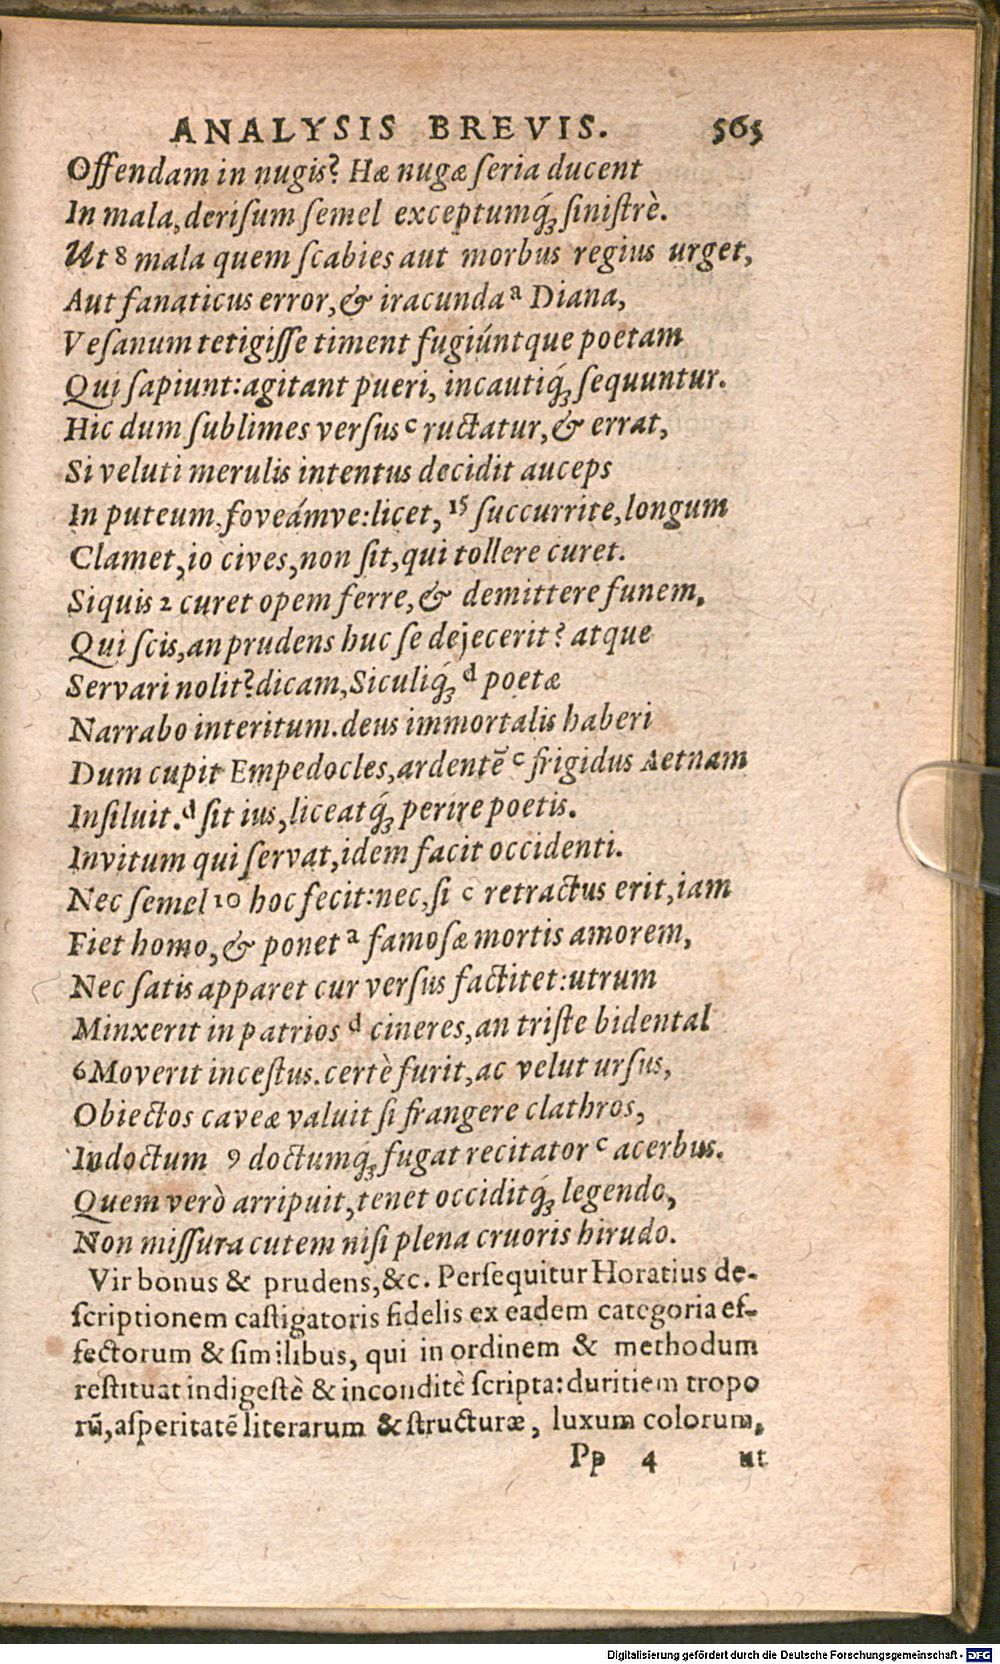 ANALYSIS BREVIS. 565
Offendam in nugis? Hæ nugæ ſeria ducent
In mala, deriſum ſemel exceptumq́ꝫ ſiniſtrè.
Ut 8 mala quem ſcabies aut morbus regius urget,
Aut fanaticus error, & iracunda ᵃ Diana,
Veſanum tetigiſſe timent fugiúntque poetam
Qui ſapiunt: agitant pueri, incautiq́ꝫ ſequuntur.
Hic dum ſublimes verſus ᶜ ructatur, & errat,
Si veluti merulis intentus decidit auceps
In puteum, foveámve: licet, ¹⁵ ſuccurrite, longum
Clamet, io cives, non ſit, qui tollere curet.
Siquis 2 curet opem ferre, & demittere funem,
Qui ſcis, an prudens huc ſe dejecerit? atque
Servari nolit? dicam, Siculiq́ꝫ ᵈ poetæ
Narrabo interitum. deus immortalis haberi
Dum cupit Empedocles, ardentē ᶜ frigidus Aetnam
Inſiluit. ᵈ ſit ius, liceatq́ꝫ perire poetis.
Invitum qui ſervat, idem facit occidenti.
Nec ſemel 10 hoc fecit: nec, ſi ᶜ retractus erit, iam
Fiet homo, & ponet ᵃ famoſæ mortis amorem,
Nec ſatis apparet cur verſus factitet: utrum
Minxerit in patrios ᵈ cineres, an triſte bidental
6 Moverit inceſtus. certè furit, ac velut urſus,
Obiectos caveæ valuit ſi frangere clathros,
Indoctum 9 doctumq́ꝫ fugat recitator ᶜ acerbus.
Quem verò arripuit, tenet occiditq́ꝫ legendo,
Non miſſura cutem niſi plena cruoris hirudo.
Vir bonus & prudens, &c. Perſequitur Horatius de-
ſcriptionem caſtigatoris fidelis ex eadem categoria ef-
fectorum & ſimilibus, qui in ordinem & methodum
reſtituat indigeſtè & inconditè ſcripta: duritiem tropo
rū, aſperitatē literarum & ſtructuræ, luxum colorum,
Pp 4 ut
Digitalisierung gefördert durch die Deutsche Forschungsgemeinschaft - DFG